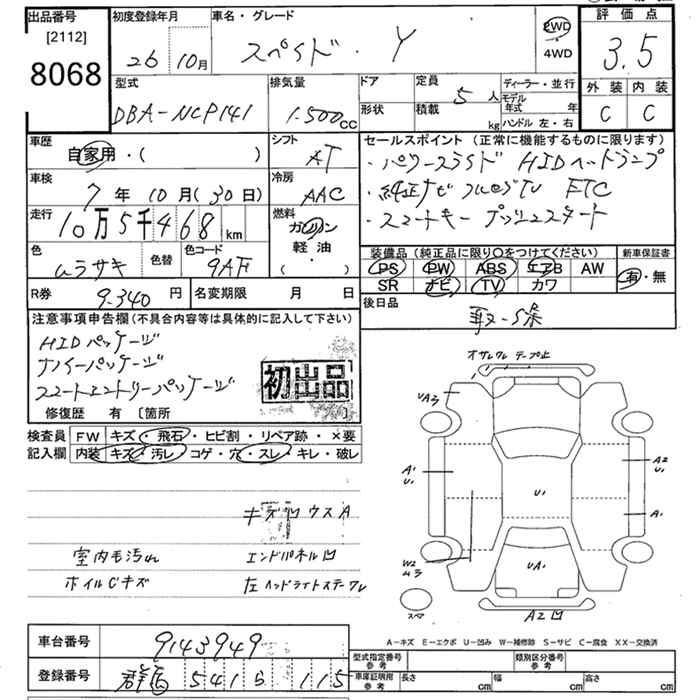 出品番号
[2112]
8068
初度登録年月
26 10月
車名・グレード
スペイド・Y
2WD
・
4WD
評価点
3.5
外装 内装
C C
型式
DBA-NCP141
排気量
1.500cc
ドア
形状
定員
5人
積載 kg
ディーラー・並行
モデル年式 年
ハンドル 左・右
車歴
自家用・( )
シフト
AT
車検
7年10月(30日)
冷房
AAC
走行
10万5千468km
燃料
ガソリン
軽油
・( )
色
ムラサキ
色替
色コード
9AF
R券
9.340円
名変期限 月 日
セールスポイント(正常に機能するものに限ります)
・パワースライド HIDヘッドランプ
・純正ナビ フルセグTV ETC
・スマートキー プッシュスタート
装備品(純正品に限り○をつけてください)
PS PW ABS エアB AW
SR ナビ TV カワ
新車保証書
有・無
後日品
取・S条
注意事項申告欄(不具合内容等は具体的に記入して下さい)
HIDパッケージ
ナノイーパッケージ
スマートエントリーパッケージ
初出品
修復歴 有〔箇所 〕
検査員記入欄
FW キズ・飛石・ヒビ割・リペア跡・×要
内装 キズ・汚レ・コゲ・穴・スレ・キレ・破レ
室内毛汚れ
エンドパネル凹
ホイルCキズ
左ヘッドライトステークレ
オサレクレ テープ止
UAろ
A1
U1
A2
U1
U1
A1
W2
ムラ
UA1
スペア
A2凹
A-キズ E-エクボ U-凹み W-補修跡 S-サビ C-腐食 XX-交換済
車台番号
9143949
登録番号
群馬 541 115
型式指定番号
参考
類別区分番号
参考
車庫証明用
参考
長さ cm
幅 cm
高さ cm